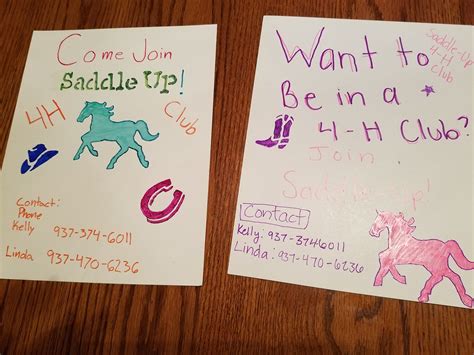 Come Join
Saddle Up!
4H
Club
Contact:
Phone
Kelly 937-374-6011
Linda 937-470-6236
Want to
Be in a
4-H Club?
Join
Saddle-Up!
Contact
Kelly: 937-3746011
Linda: 937-470-6236
Saddle-Up
4-H
Club